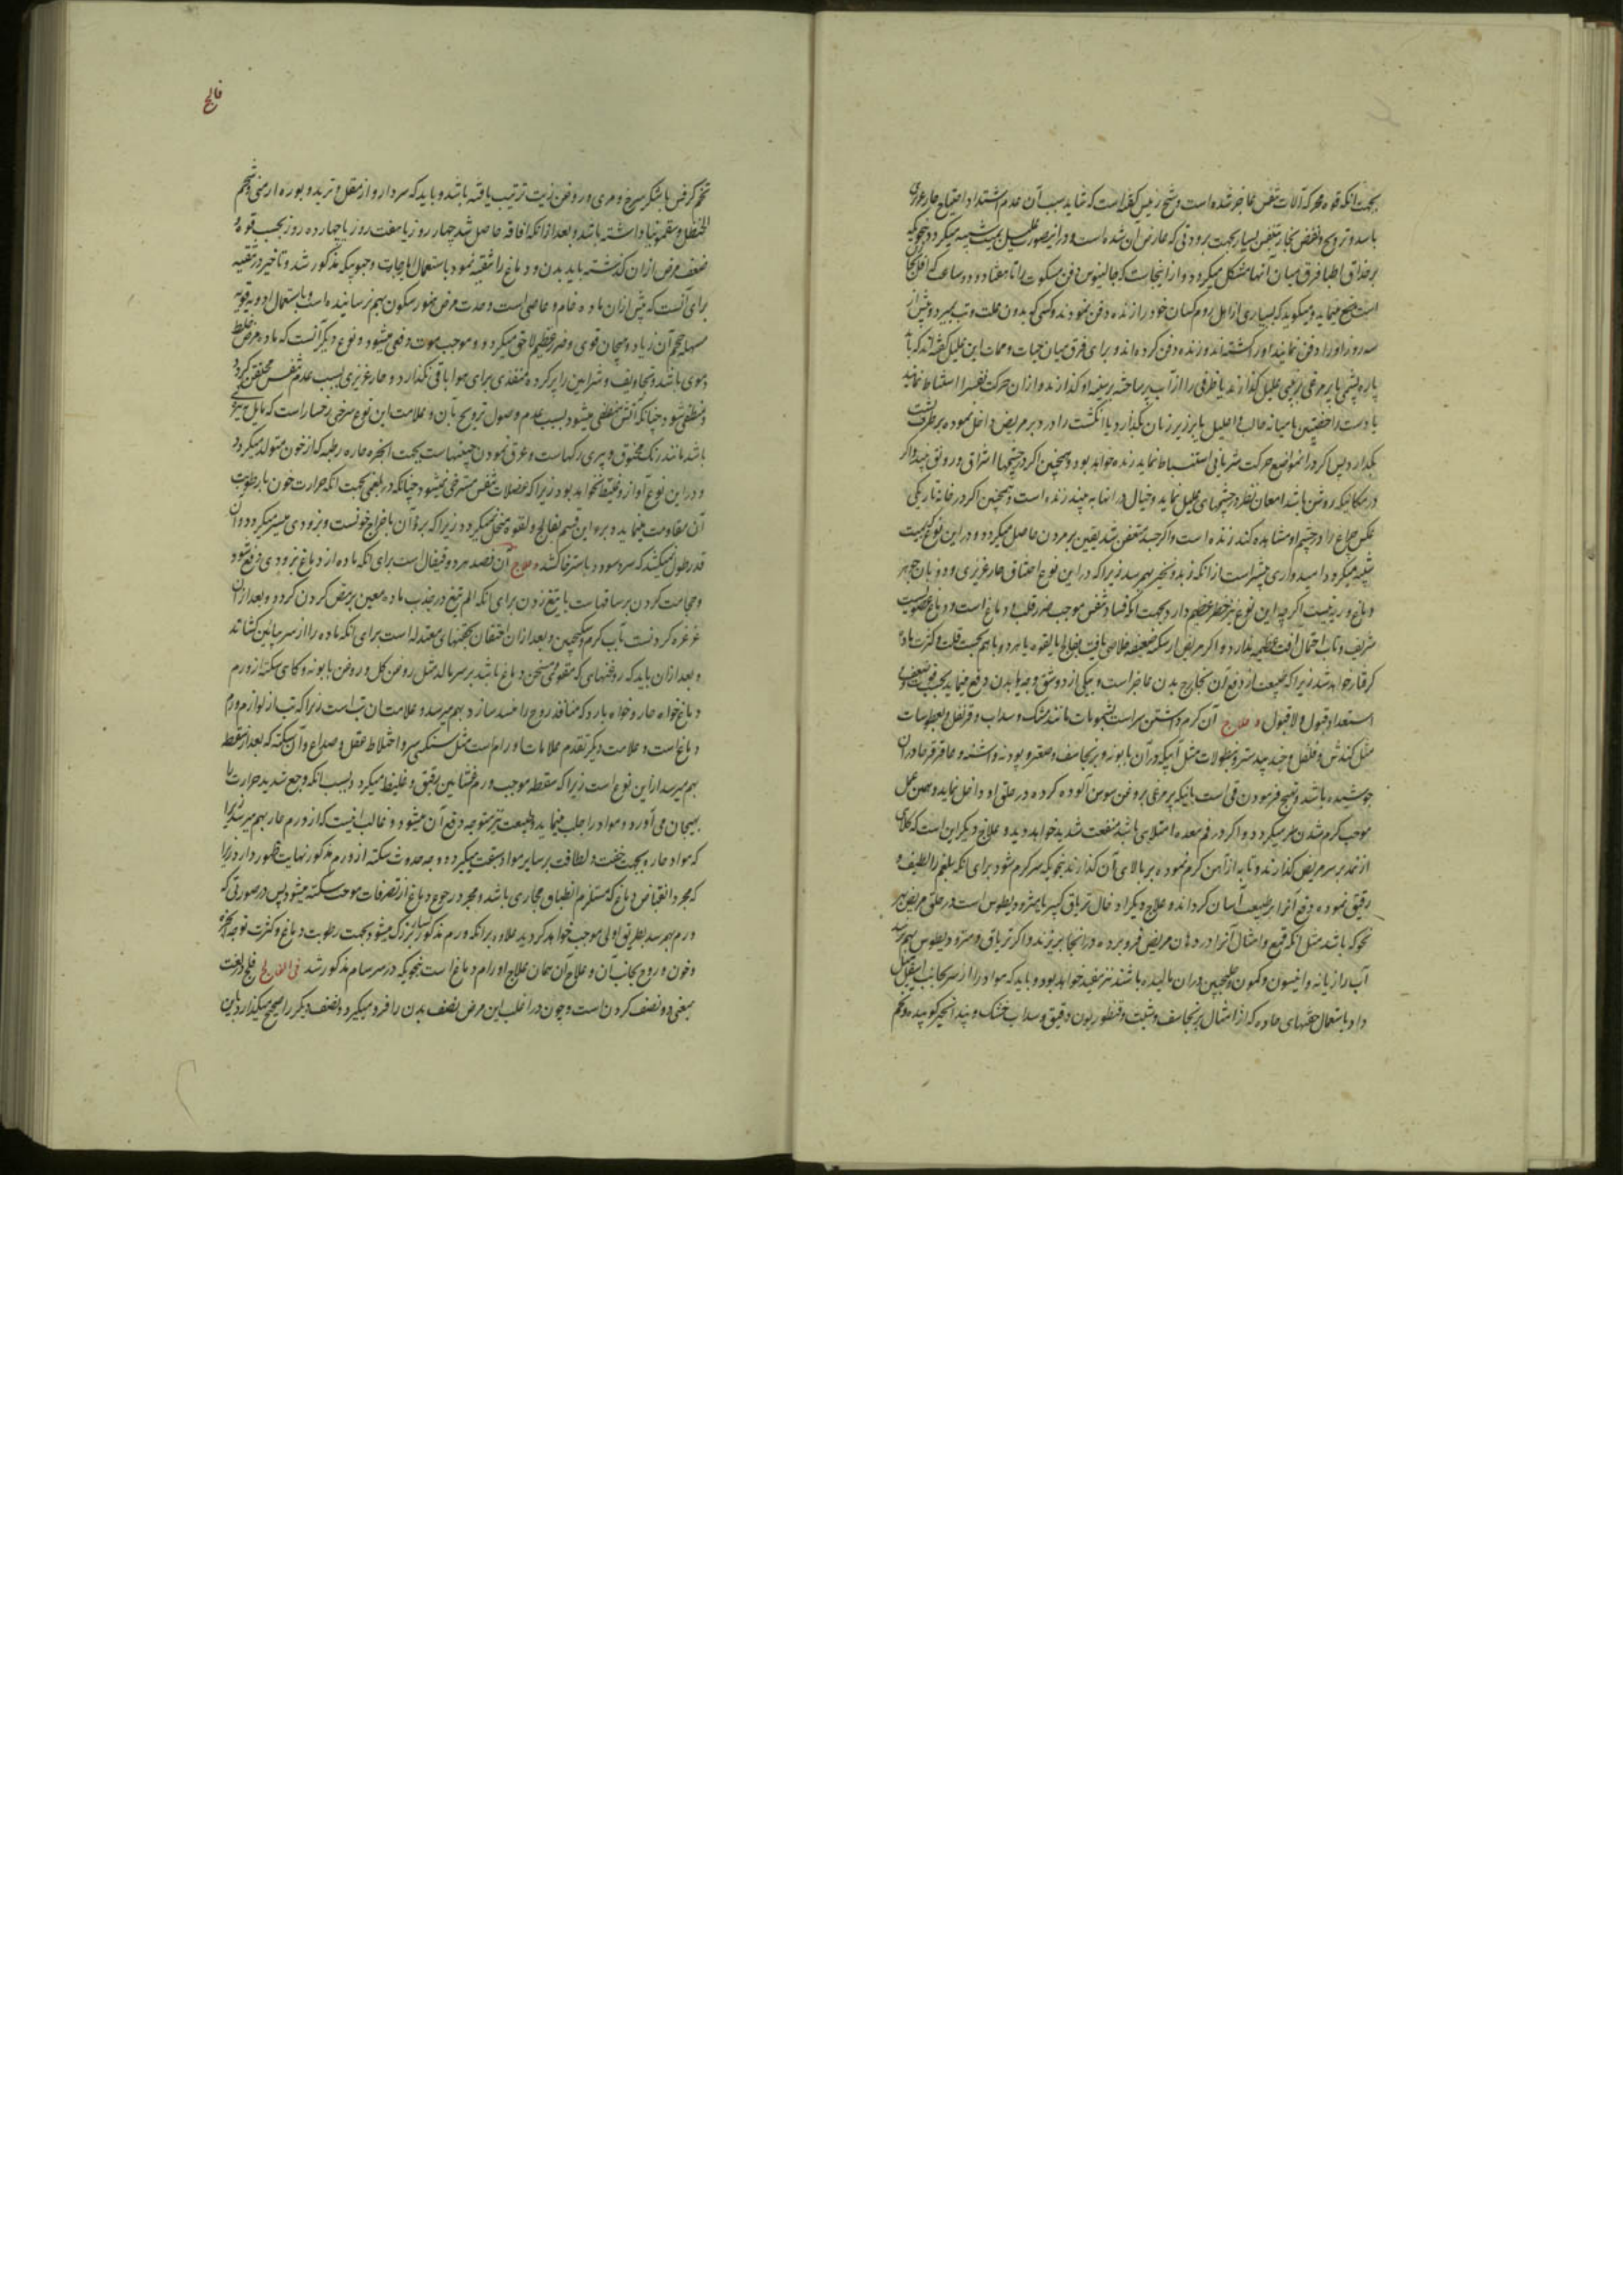 بجهت انکه قوه محرکه آلات تنفس عاجز شده است و شیخ رئیس گفته است که شاید سبب آن عدم اشتداد احتیاج حار غریزی
باشد و ترویح و نفض بخار تنفس بسیار بجهت برودتی که عارض آن شده است و درانصورت علیل بمیت شبیه میکردد بنحویکه
بر حذاق اطبا فرق میان آنها مشکل میکردد و از اینجاست که جالینوس دفن مسکوت را تا هفتاد و دو ساعت که اقل آنجا
است منع مینماید و میکوید که بسیاری از اهل روم کسان خود را زنده دفن نمودند و کسی که بدون علت و تب بمیرد و پیش از
سه روز او را دفن نمایند او را کشته‌اند و زنده دفن کرده‌اند و برای فرق میان حیات و ممات این علیل گفته‌اند که با
پاره پشمی یا پر مرغی بر بینی علیل گذارند یا ظرفی را از آب پر ساخته بر سینه او گذارند و ازان حرکت نفس را استنباط نمایند
یا دست را میانه حالب و احلیل یا بر زیر زبان بگذارد یا انگشت را در دبر مریض داخل نموده بر طرف پشت
بگذارد پس اگر درانمواضع حرکت شریانی استنباط نماید زنده خواهد بود و همچنین اگر در چشمها اشراق و رونق بیند و اگر
در مکانیکه روشن باشد امعان نظر در چشمهای علیل نماید و خیال در انها به بیند زنده است و همچنین اگر در خانه تاریکی
عکس چراغ را در چشم او مشاهده کند زنده است و اگر جسد متعفن شد یقین بر مردن حاصل میکردد و در این نوع که بمیت
شبیه میکردد امیدواری بیشتر است از انکه زبد و نخیر بهم رسد زیرا که در این نوع احتناق حار غریزی و ذوبان جوهر
دماغ و ریه نیست اگرچه این نوع نیز خطر عظیم دارد بجهت انکه فساد تنفس موجب ضرر قلب و دماغ است و دماغ عضویست
شریف و تاب احتمال آفت عظیمه ندارد و اگر مریض از سکته ضعیفه خلاصی یافت بفالج یا لقوه یا هر دو با هم بحسب قلت و کثرت ماده
گرفتار خواهد شد زیرا که طبیعت از دفع آن بخارج بدن عاجز است و بیکی از دو شق وجه یا بدن دفع مینماید بحسب قوت و ضعف و
استعداد قبول و لا قبول و علاج آن گرم داشتن سر است بشمومات مانند مشک و سداب و قرنفل و بعطوسات
مثل کندش و فلفل و جند بیدستر و بنطولات مثل آبیکه دران بابونه و برنجاسف و صعتر و پودنه و اشنه و عاقرقرحا دران
جوشیده باشد و تهییج فرمودن قی است باینکه پر مرغی بروغن سوسن آلوده کرده در حلق او داخل نماید و همین عمل
موجب گرم شدن سر میکردد و اگر در فم معده امتلائی باشد منفعت شدید خواهد دید و علاج دیگر این است که کلاهی
از نمد بر سر مریض گذارند و تابه از آهن گرم نموده بر بالای آن گذارند بنحویکه سر گرم شود برای انکه بلغم را لطیف و
رقیق نموده دفع آنرا بر طبیعت آسان گرداند و علاج دیگر ادخال تریاق کبیر یا مثرودیطوس است در حلق مریض بهر
نحو که باشد مثل انکه قمع و امثال آنرا در دهان مریض فرو برده در انجا بریزند و اگر تریاق و مثرودیطوس بهم نرسد
آب رازیانه و انیسون و کمون و سکنجبین دران مالیده باشند نیز مفید خواهد بود و باید که مواد را از سر بجانب اسفل میل
داد باستعمال حقنهای حاده که از امثال برنجاسف و شبت و قنطوریون دقیق و سداب خشک و بید انجیر کوبیده و تخم
فالج
تخم کرفس با شکر سرخ و مری و روغن زیت ترتیب یافته باشد و باید که سردارو از مقل و تربد و بوره ارمنی و شحم
الحنظل و سقمونیا داشته باشد و بعد از انکه افاقه حاصل شد چهار روز یا هفت روز یا چهارده روز بحسب قوه و
ضعف مرض ازان گذشته باید بدن و دماغ را تنقیه نمود باستعمال ایارجات و حبوبیکه مذکور شد و تاخیر در تنقیه
برای آنست که پیش ازان ماده خام و عاصی است و حدت مرض هنوز سکون بهم نرسانیده است و باستعمال ادویه قویه
مسهله حجم آن زیاد و هیجان قوی و ضرر عظیم لاحق میکردد و موجب موت دفعی میشود و نوع دیگر آنست که ماده مرض خلط
دموی باشد و تجاویف و شرائین را پر کرده منفذی برای هوا باقی نگذارد و حار غریزی بسبب عدم تنفس مختنق گردد
و منطفی شود چنانکه آتش منطفی میشود بسبب عدم وصول ترویح بآن و علامت این نوع سرخی رخسار است که مایل بتیرگی
باشد مانند رنگ مخنوق و پری رگهاست و عرق نمودن جبینهاست بجهت ابخره حاره رطبه که از خون متولد میکردد
و در این نوع آواز و غطیط نخواهد بود زیرا که عضلات تنفس مسترخی نمیشود چنانکه در بلغمی بجهت انکه حرارت خون با رطوبت
آن مقاومت مینماید و برء این قسم بفالج و لقوه منحل نمیگردد زیرا که برؤ آن باخراج خونست و بزودی میسر میگردد و آن
قدر طول نمیکشد که سر مسدود باسترخا کشد و علاج آن فصد هر دو قیفال است برای انکه ماده از دماغ بزودی دفع شود
و حجامت کردن بر ساقهاست با تیغ زدن برای انکه الم تیغ در جذب ماده معین بر مص کردن گردد و بعد ازان
غرغره کردنست بآب گرم و سکنجبین و بعد ازان احتقان بحقنهای معتدله است برای انکه ماده را از سر بپائین کشاند
و بعد ازان باید که روغنهائی که مقوی و مسخن دماغ باشد بر سر مالد مثل روغن گل و روغن بابونه و گاهی سکته از ورم
دماغ خواه حار و خواه بارد که منافذ روح را منسد سازد بهم میرسد و علامت آن تب است زیرا که تب از لوازم ورم
دماغ است و علامت دیگر تقدم علامات اورام است مثل سنگینی سر و اختلاط عقل و صداع و آن سکته که بعد از سقطه
بهم میرسد از این نوع است زیرا که سقطه موجب ورم غشائین رقیق و غلیظ میگردد بسبب انکه وجع شدید حرارت را
بهیجان می‌آورد و مواد را جلب مینماید و طبیعت نیز متوجه دفع آن میشود و غالب اینست که از ورم حار بهم میرسد زیرا
که مواد حاره بجهت خفت و لطافت بر سایر مواد سبقت میگیرد و وجه حدوث سکته از ورم مذکور نهایت ظهور دارد زیرا
که مجرد انقباض دماغ که مستلزم انطباق مجاری باشد و مجرد رجوع دماغ از تصرفات موجب سکته میشود پس در صورتی که
ورم بهم رسد بطریق اولی موجب خواهد گردید علاوه بر انکه ورم مذکور بسیار بزرگ میشود بجهت رطوبت دماغ و کثرت توجه ابخره
و خون و روح بجانب آن و علاج آن همان علاج اورام دماغ است بنحویکه در سرسام مذکور شد فی الفالج فلج در لغت
بمعنی دو نصف کردن است و چون در اغلب این مرض نصف بدن را فرو میگیرد و نصف دیگر را صحیح میگذارد باین